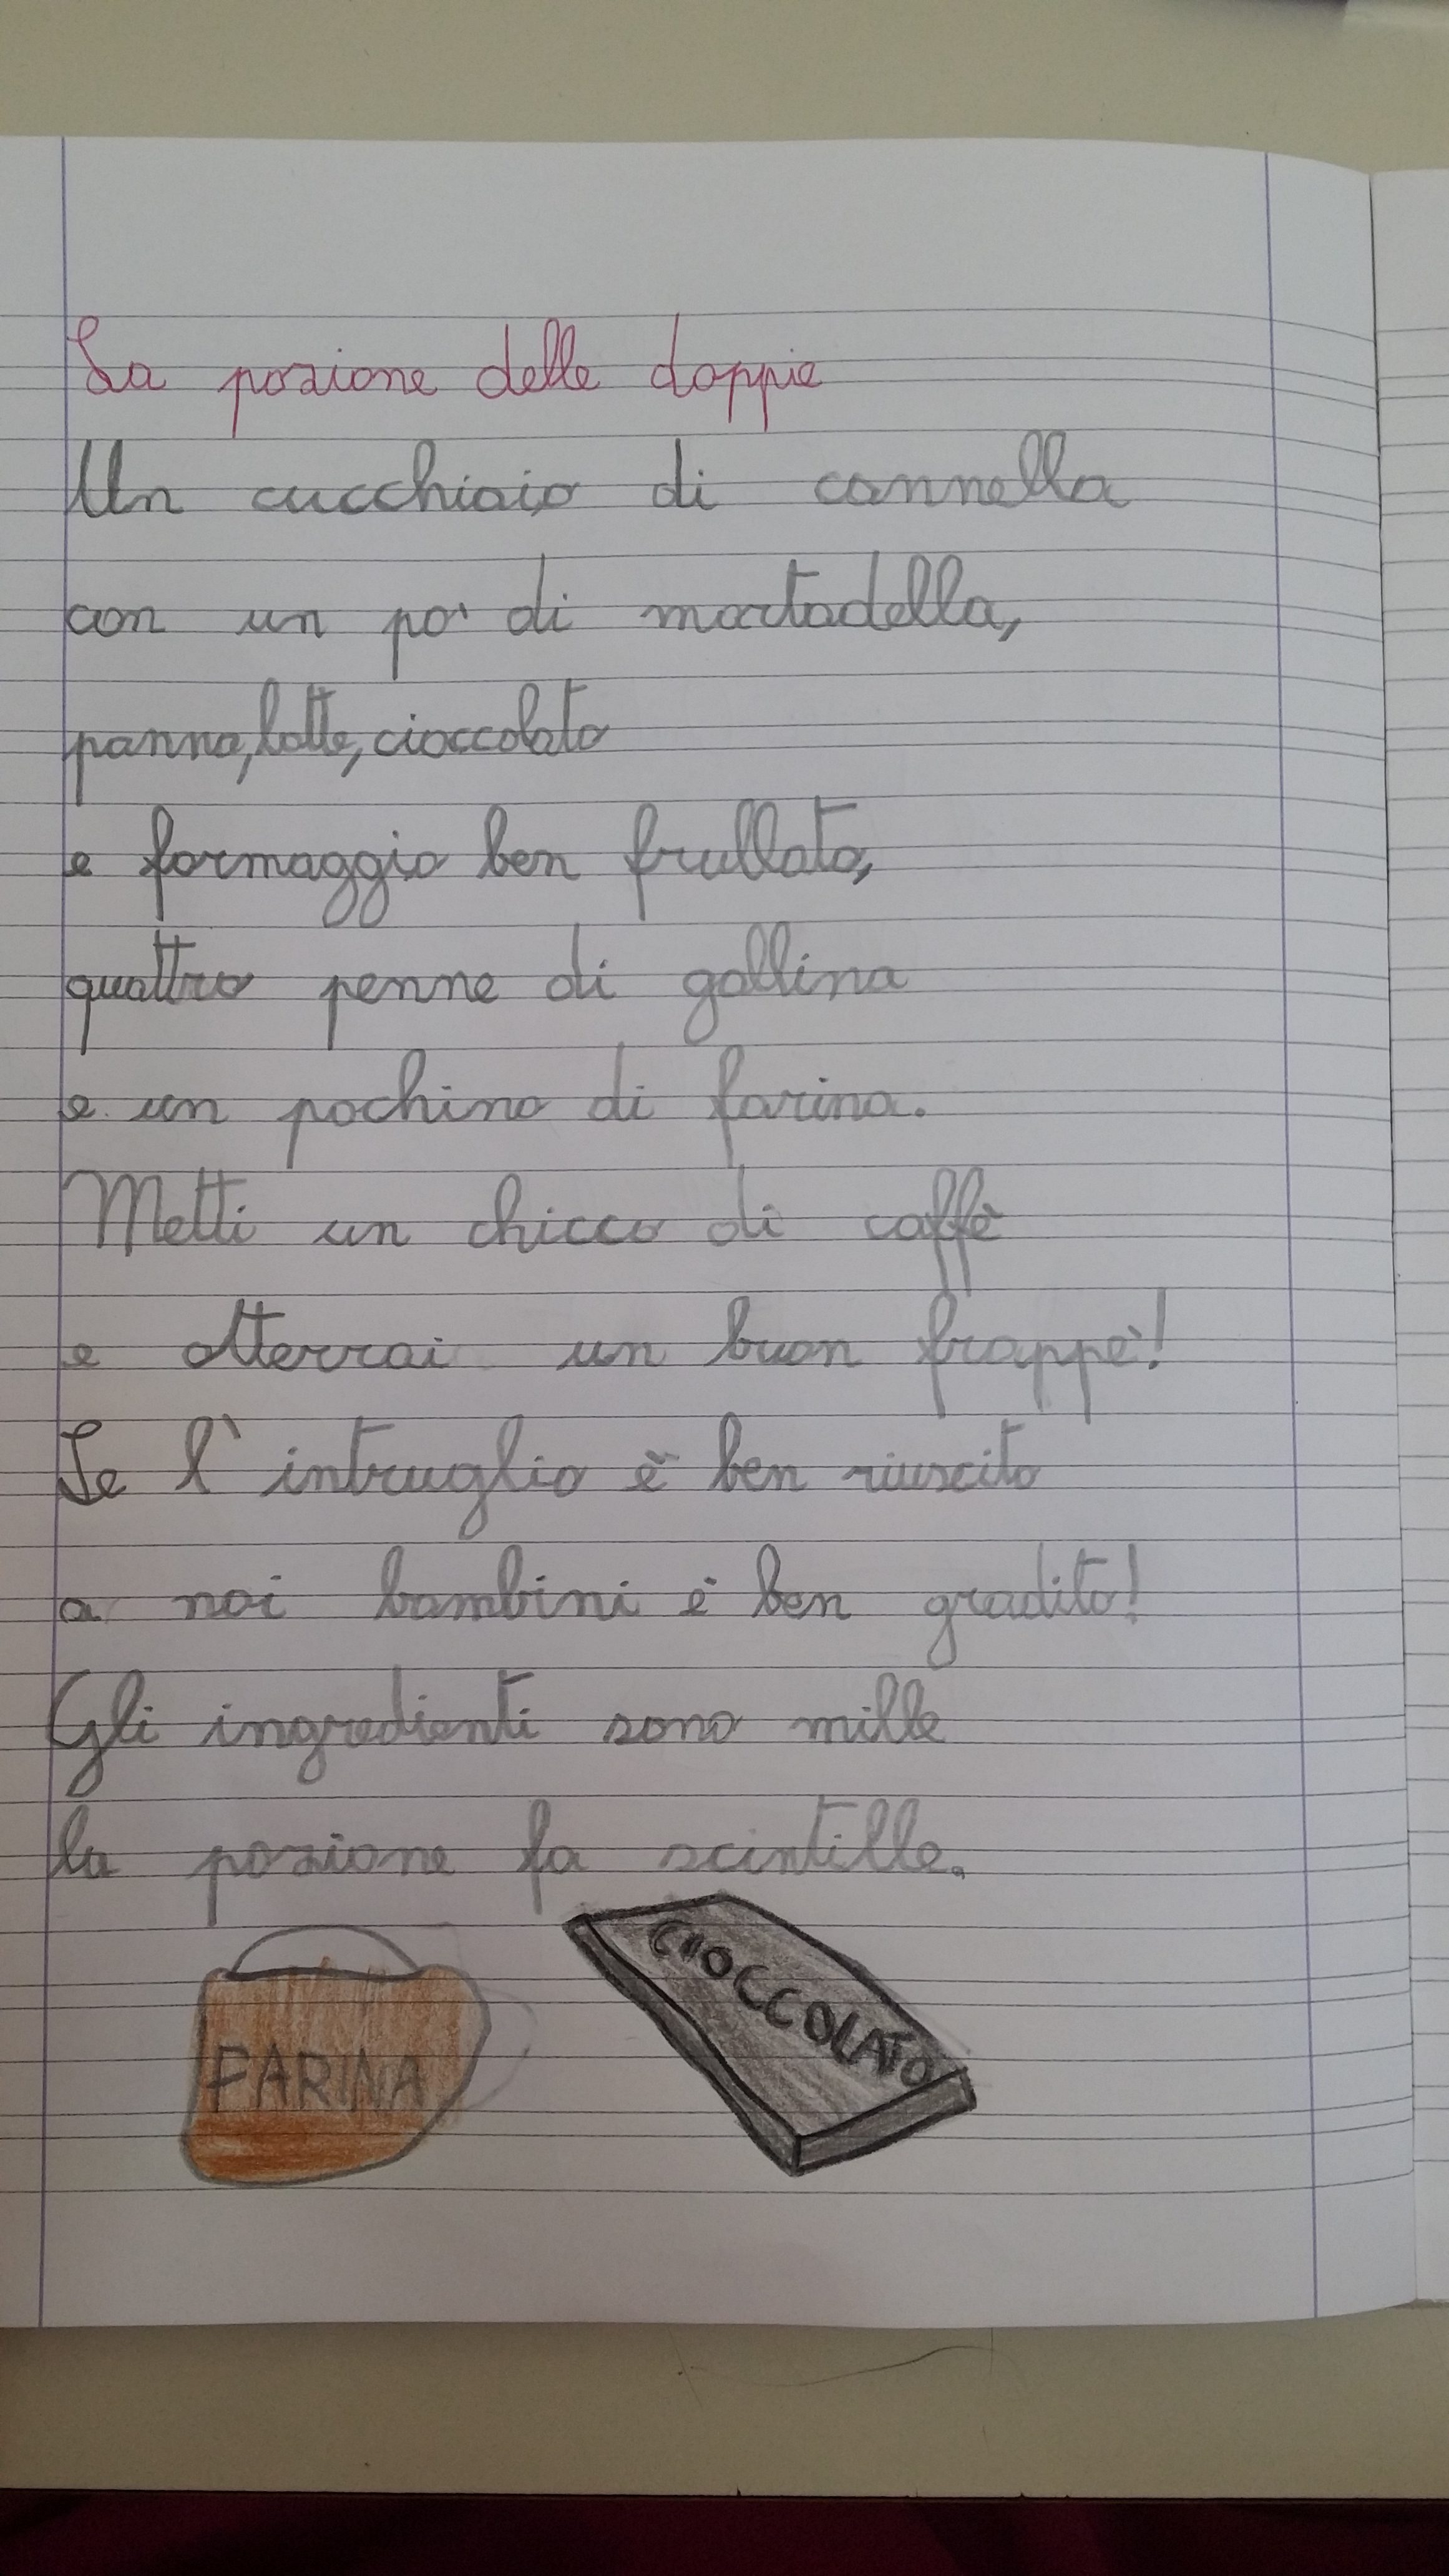 La pozione delle doppie
Un cucchiaio di cannella
con un po' di mortadella,
panna, latte, cioccolato
e formaggio ben frullato,
quattro penne di gallina
e un pochino di farina.
Metti un chicco di caffè
e otterrai un buon frappè!
Se l'intruglio è ben riuscito
a noi bambini è ben gradito!
Gli ingredienti sono mille
la pozione fa scintille.
FARINA
CIOCCOLATO